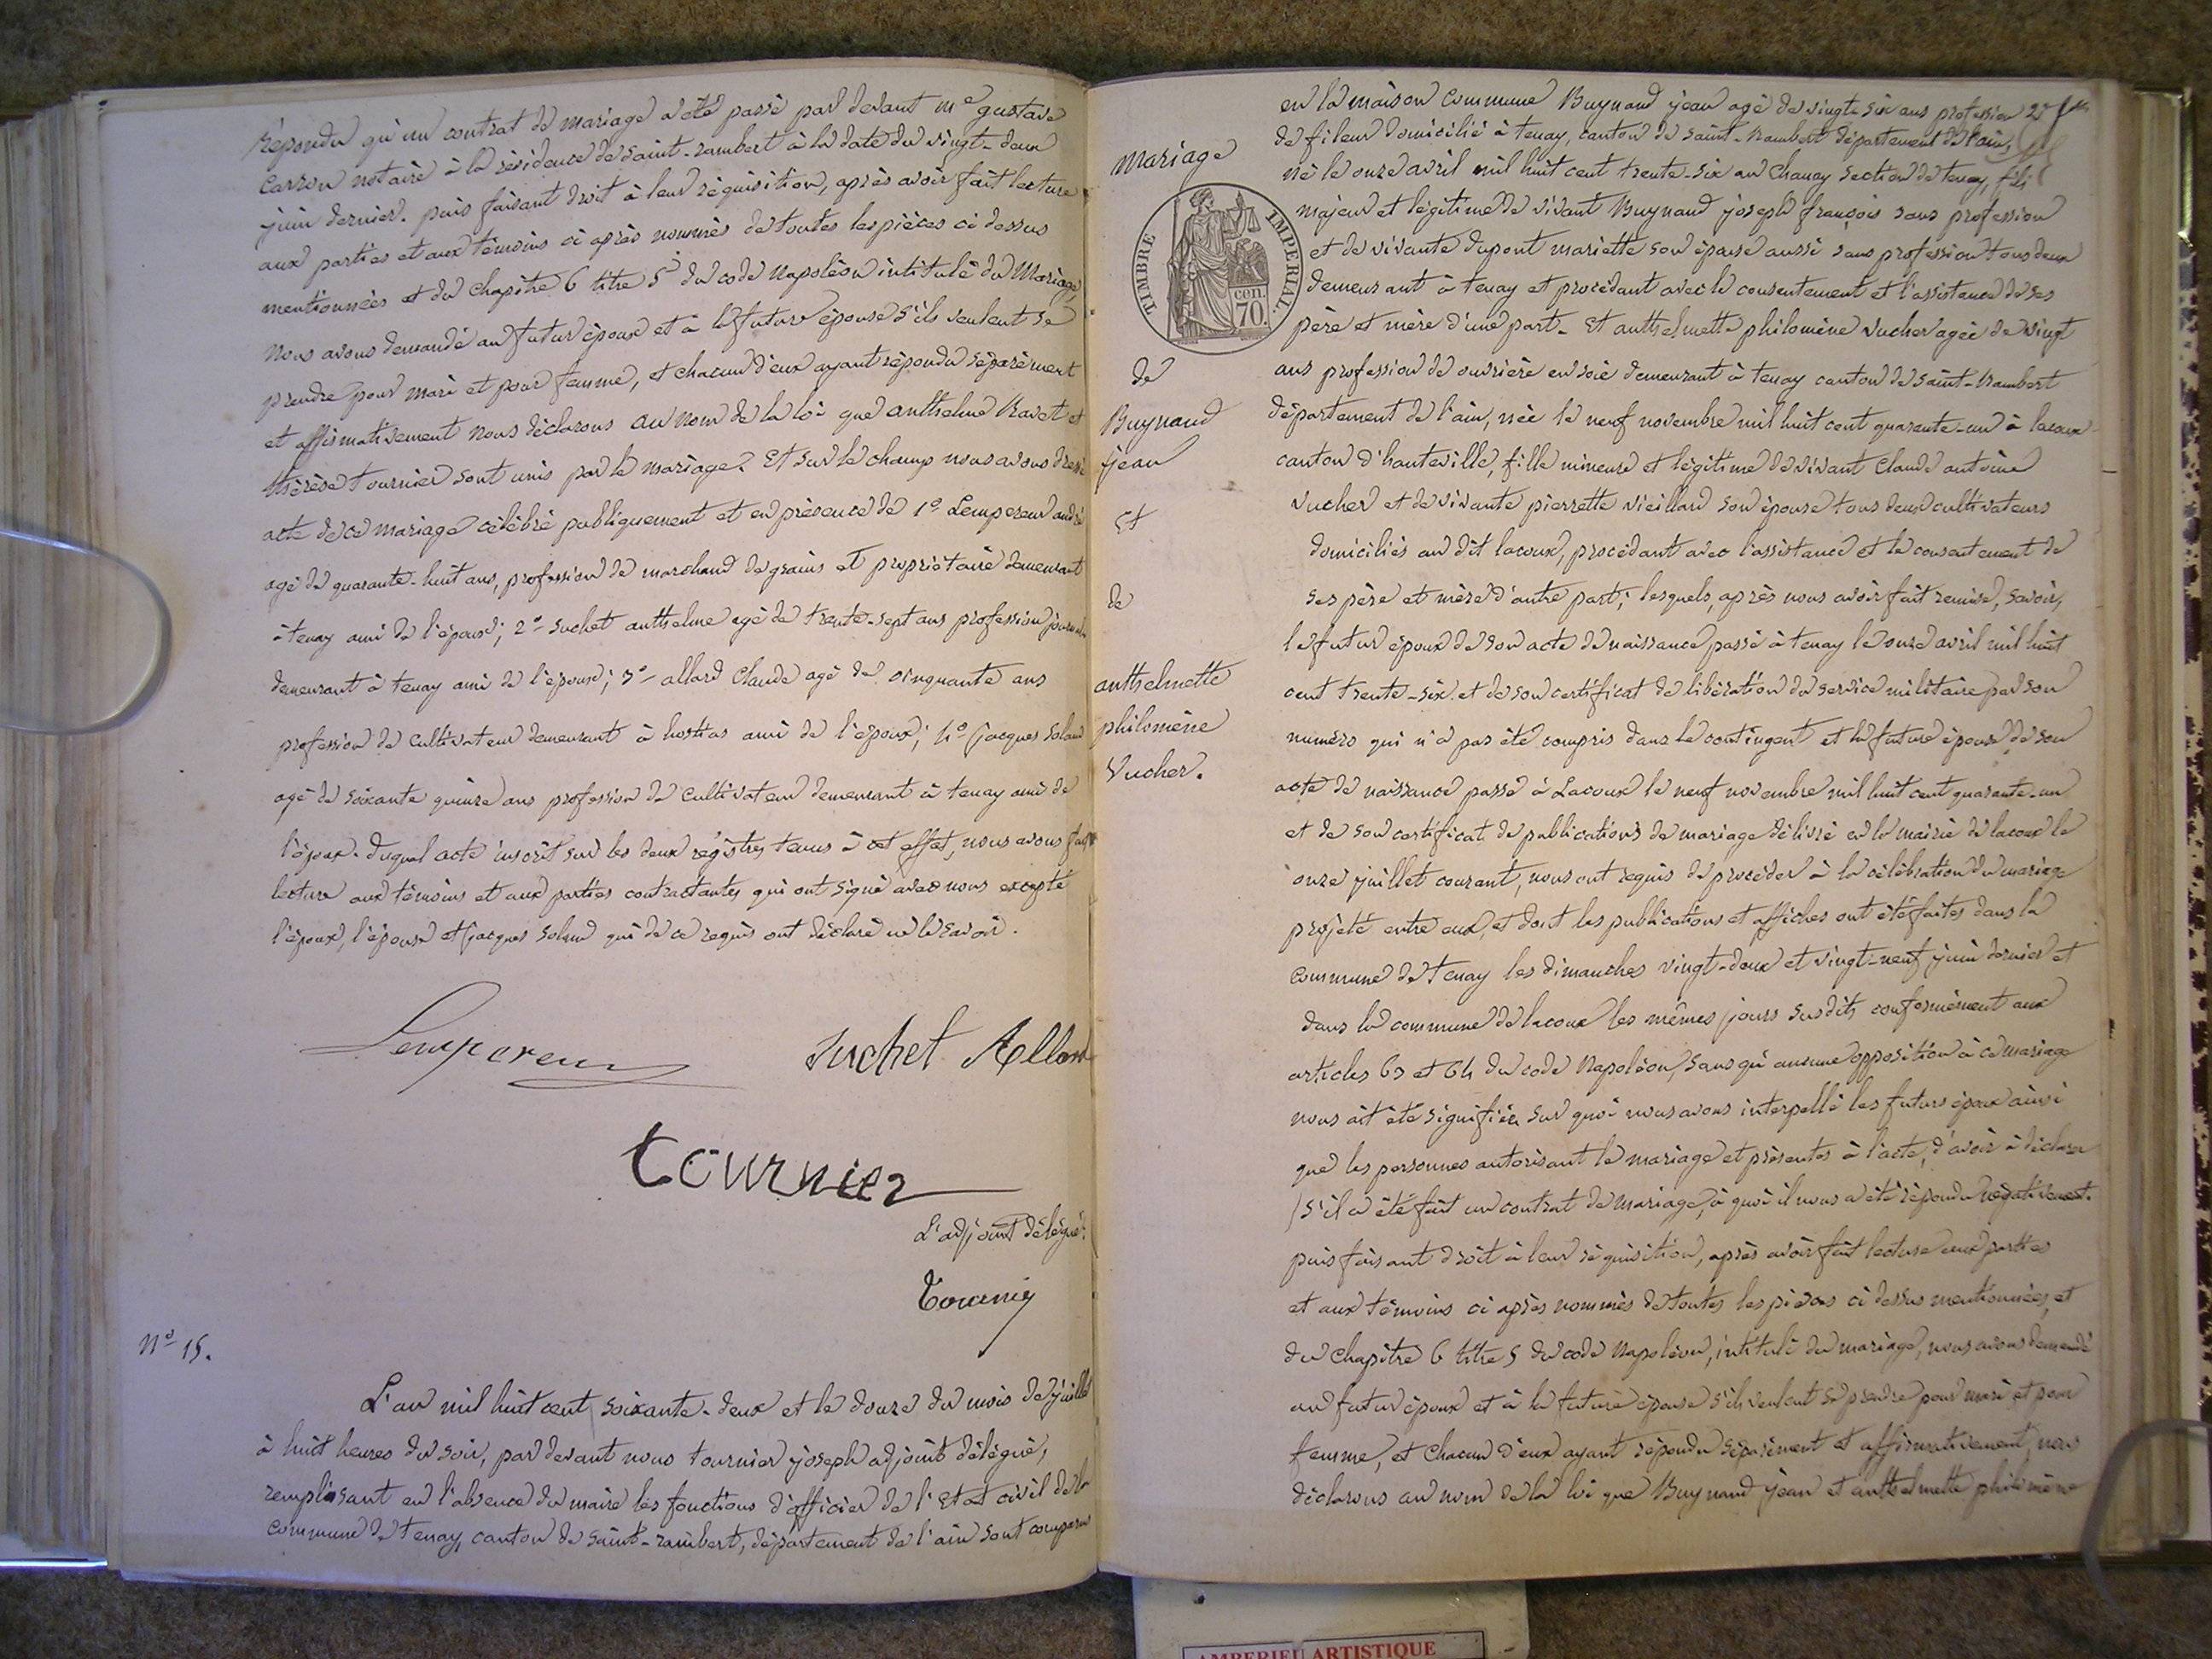 répondu qu'un contrat de mariage a été passé par devant me gustave
Carron notaire à la résidence de saint-rambert à la date du vingt-deux
juin dernier. puis faisant droit à leur réquisition, après avoir fait lecture
aux parties et aux témoins ci après nommés de toutes les pièces ci dessus
mentionnées et du chapitre 6 titre 5 du code Napoléon intitulé du Mariage,
Nous avons demandé au futur époux et à la future épouse s'ils veulent se
prendre pour mari et pour femme, et chacun d'eux ayant répondu séparément
et affirmativement nous déclarons au nom de la loi que anthelme Ravet et
thérèse tournier sont unis par le mariage. Et sur le champ nous avons dressé
acte de ce mariage célébré publiquement et en présence de 1º Lempereur andré
agé de quarante-huit ans, profession de marchand de grains et propriétaire demeurant
à tenay ami de l'époux; 2º- suchet anthelme agé de trente-sept ans profession
demeurant à tenay ami de l'époux; 3º- allard Claude agé de cinquante ans
profession de cultivateur demeurant à hostias ami de l'époux; 4º jacques
agé de soixante quinze ans profession de cultivateur demeurant à tenay ami de
l'époux. duquel acte inscrit sur les deux régistres tenus à cet effet, nous avons fait
lecture aux témoins et aux parties contractantes qui ont signé avec nous excepté
l'époux, l'épouse et jacques qui de ce requis ont déclaré ne le savoir.
Lempereur
Suchet Allard
tournier
L'adjoint délégué:
Tournier
Nº 15.
L'an mil huit cent soixante-deux et le douze du mois de juillet
à huit heures du soir, par devant nous tournier joseph adjoint délégué,
remplissant en l'absence du maire les fonctions d'officier de l'Etat civil de la
commune de tenay, canton de saint-rambert, département de l'ain sont comparus
en la maison commune Buynand jean agé de vingt six ans profession
de fileur domicilié à tenay, canton de saint-Rambert département de l'ain,
né le onze avril mil huit cent trente-six au Chanay section de tenay, fils
majeur et légitime de vivant Buynand joseph françois sans profession
et de vivante dupont mariette son épouse aussi sans profession tous deux
demeurant à tenay et procédant avec le consentement et l'assistance de ses
père et mère d'une part. Et anthelmette philomène vucher agée de vingt
ans profession de ouvrière en soie demeurant à tenay canton de saint-Rambert
département de l'ain, née le neuf novembre mil huit cent quarante-un à lacoux
canton d'hauteville, fille mineure et légitime de vivant Claude antoine
vucher et de vivante pierrette vieillard son épouse tous deux cultivateurs
domiciliés au dit lacoux, procédant avec l'assistance et le consentement de
ses père et mère d'autre part; lesquels, après nous avoir fait remise, savoir,
le futur époux de son acte de naissance passé à tenay le onze avril mil huit
cent trente-six et de son certificat de libération du service militaire par son
numéro qui n'a pas été compris dans le contingent et la future épouse de son
acte de naissance passé à Lacoux le neuf novembre mil huit cent quarante-un
et de son certificat de publications de mariage délivré en la mairie de lacoux le
onze juillet courant, nous ont requis de procéder à la célébration du mariage
projeté entre eux, et dont les publications et affiches ont été faites dans la
commune de tenay les dimanches vingt-deux et vingt-neuf juin dernier et
dans la commune de lacoux les mêmes jours susdits conformément aux
articles 63 et 64 du code Napoléon, sans qu'aucune opposition à ce mariage
nous ait été signifiée sur quoi nous avons interpellé les futurs époux ainsi
que les personnes autorisant le mariage et présentes à l'acte, d'avoir à déclarer
s'il a été fait un contrat de mariage, à quoi il nous a été répondu négativement.
puis faisant droit à leur réquisition, après avoir fait lecture aux parties
et aux témoins ci après nommés de toutes les pièces ci dessus mentionnées, et
du chapitre 6 titre 5 du code Napoléon, intitulé du mariage, nous avons demandé
au futur époux et à la future épouse s'ils veulent se prendre pour mari et pour
femme, et chacun d'eux ayant répondu séparément et affirmativement, nous
déclarons au nom de la loi que Buynand jean et anthelmette philomène
Mariage
TIMBRE IMPERIAL
70
cen.
de
Buynand
jean
Et
de
anthelmette
philomène
Vucher.
AMBERIEU ARTISTIQUE